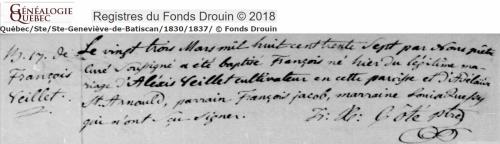 GÉNÉALOGIE QUÉBEC
Registres du Fonds Drouin © 2018
Québec/Ste/Ste-Geneviève-de-Batiscan/1830/1837/ © Fonds Drouin
B. 17. de
François
Veillet.
Le vingt trois Mars mil huit cent trente sept par Nous prêtre
Curé soussigné a été baptisé François né hier du légitime ma-
riage d'Alexis Veillet cultivateur en cette paroisse et d'Adélaïde
St. Arnould, parrain François jacob, marraine Louise
qui n'ont sçu signer. Fr: Côté ptre